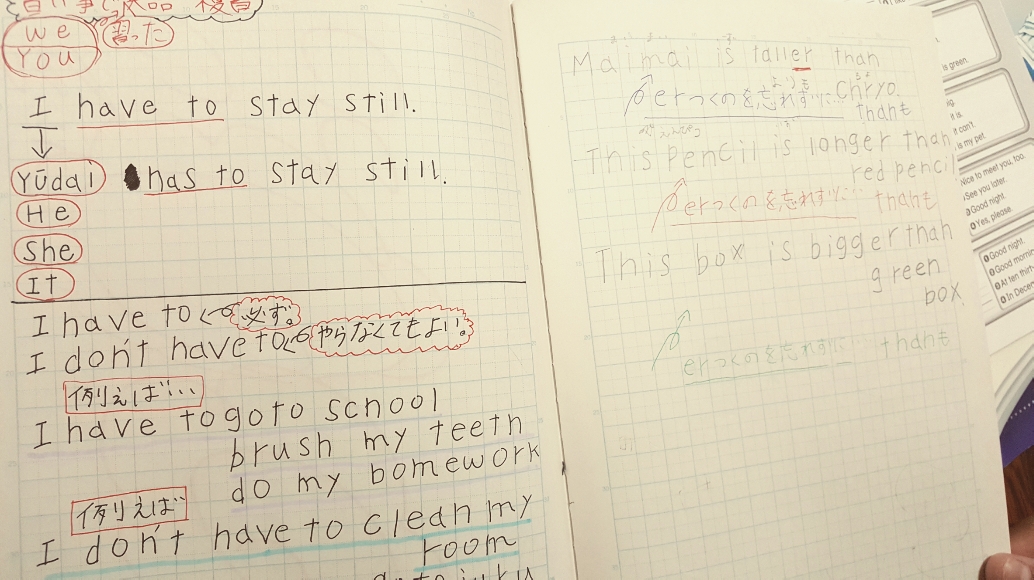 we
You
習った
I have to stay still.
Yūdai has to stay still.
He
She
It
I have to 必ず。
I don't have to やらなくてもよい。
例えば…
I have to go to school
brush my teeth
do my bomework
例えば
I don't have to clean my
room
Maimai is taller than
Chryo.
erつくのを忘れずに… thant
This pencil is longer than
red pencil
erつくのを忘れずに… thant
This box is bigger than
green
box
erつくのを忘れずに… thant
is green.
it is.
it can't.
is my pet.
Nice to meet you, too
See you later.
Good night.
Yes, please.
Good night.
Good morni
At ten thir
In Decem